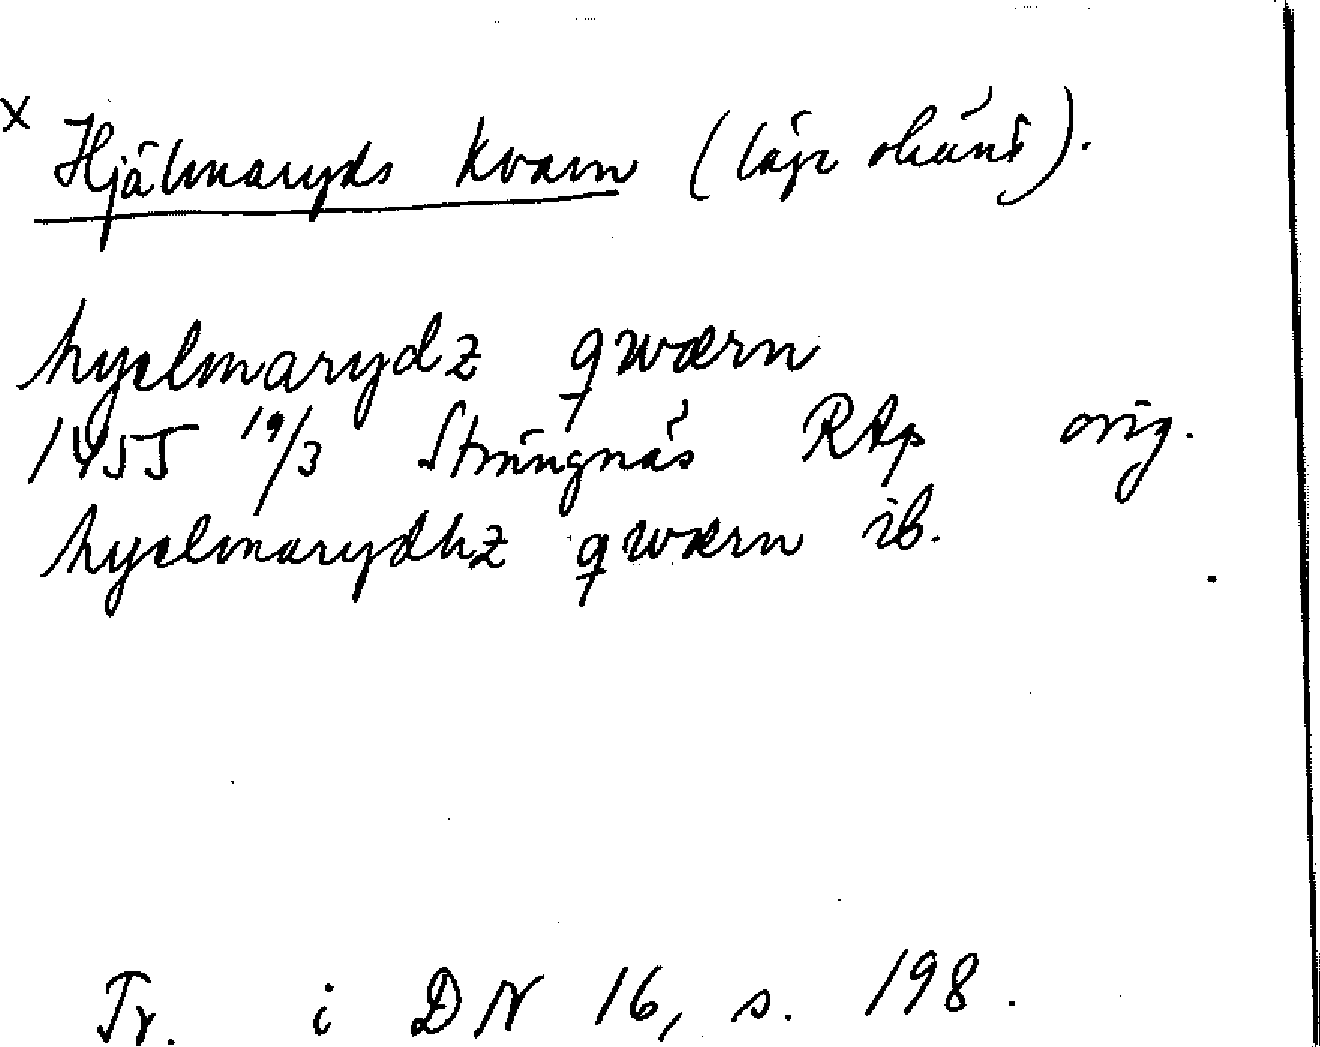 x Hjälmaryds kvarn (läge okänt).
hyelmarydz qwærn
1455 19/3 Strängnäs RAp orig.
hyelmarydhz qwærn ib.
Tr. i DN 16, s. 198.